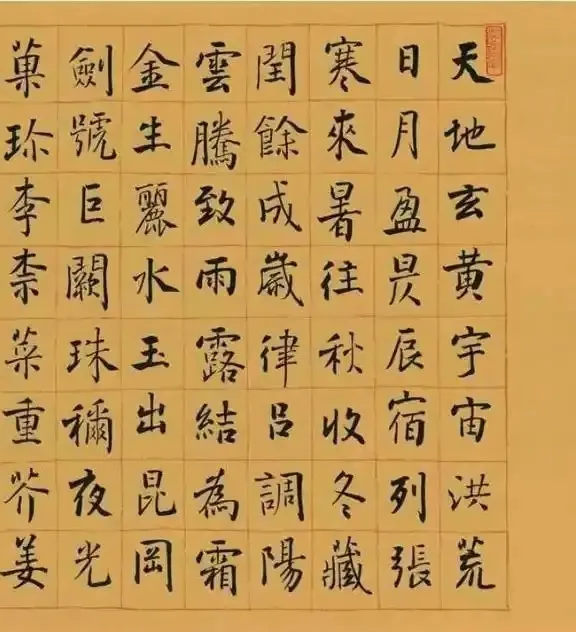 天地玄黄宇宙洪荒
日月盈昃辰宿列張
寒來暑往秋收冬藏
閏餘成歲律吕調陽
雲騰致雨露結為霜
金生麗水玉出昆岡
劍號巨闕珠穪夜光
菓珍李柰菜重芥姜